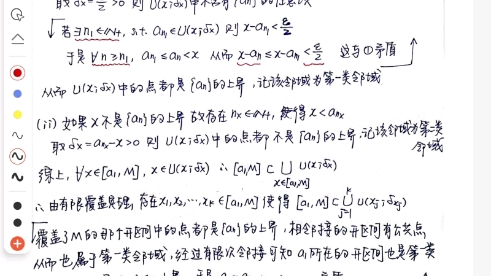 取δx = ε/2 > 0 则 U(x;δx)中不含有{an}的
若∃n₁∈ℕ+, s.t. an₁∈U(x;δx) 则 x-an₁<ε/2
于是 ∀n≥n₁, an₁≤an<x 从而 x-an≤x-an₁<ε/2 这与①矛盾
从而 U(x;δx)中的点都是{an}的上界, 记该邻域为第一类邻域
(ii) 如果x不是{an}的上界 故存在nx∈ℕ+, 使得 x<anx
取δx=anx-x>0 则 U(x;δx)中的点都不是{an}的上界, 记该邻域为第二类
邻域
综上, ∀x∈[a₁,M], x∈U(x;δx) ∴ [a₁,M] ⊂ ⋃ U(x;δx)
x∈[a₁,M]
∴ 由有限覆盖定理, 存在x₁,x₂,…,xk∈[a₁,M] 使得 [a₁,M]⊂⋃U(xj;δxj)
k
j=1
覆盖了M的那个开区间中的点都是{an}的上界, 相邻接的开区间有公共点,
从而也属于第一类邻域, 经过有限次邻接可知 a₁所在的开区间也是第一类